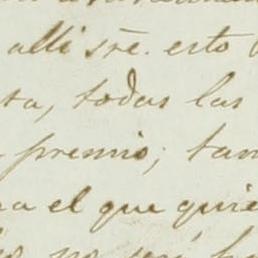 alli sre. esto
ta, todas las
premio; tam
a el que quie
no será